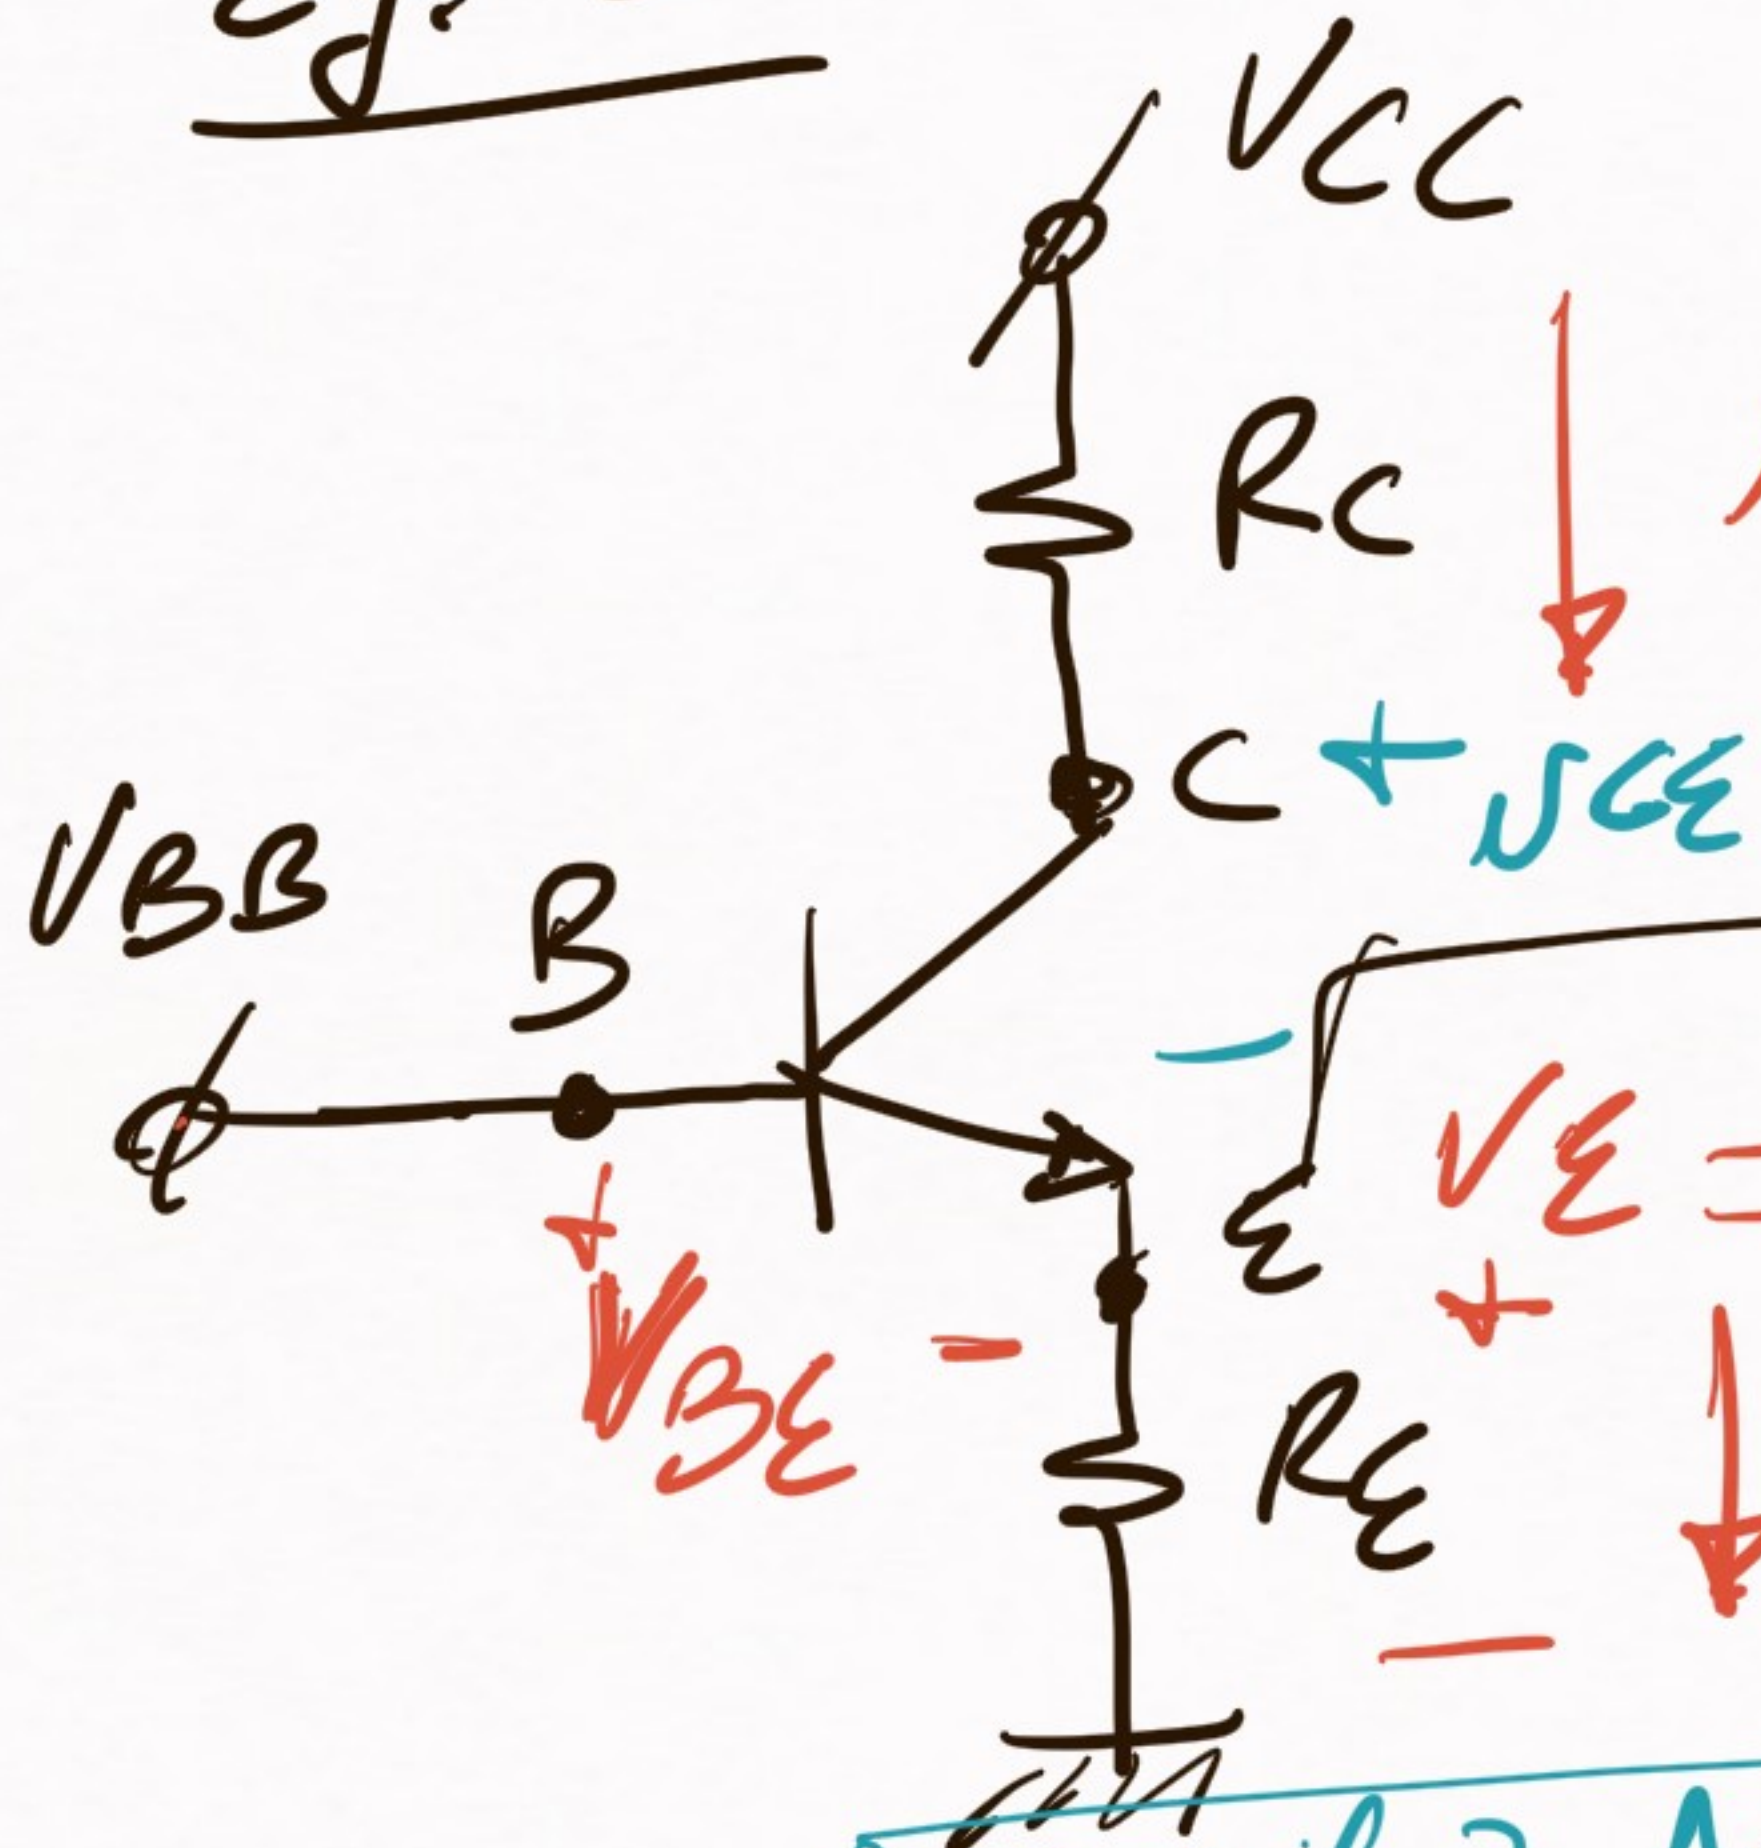 VCC
RC
C + VCE
VBB
B
-
VE =
E
+
+
VBE -
RE
-